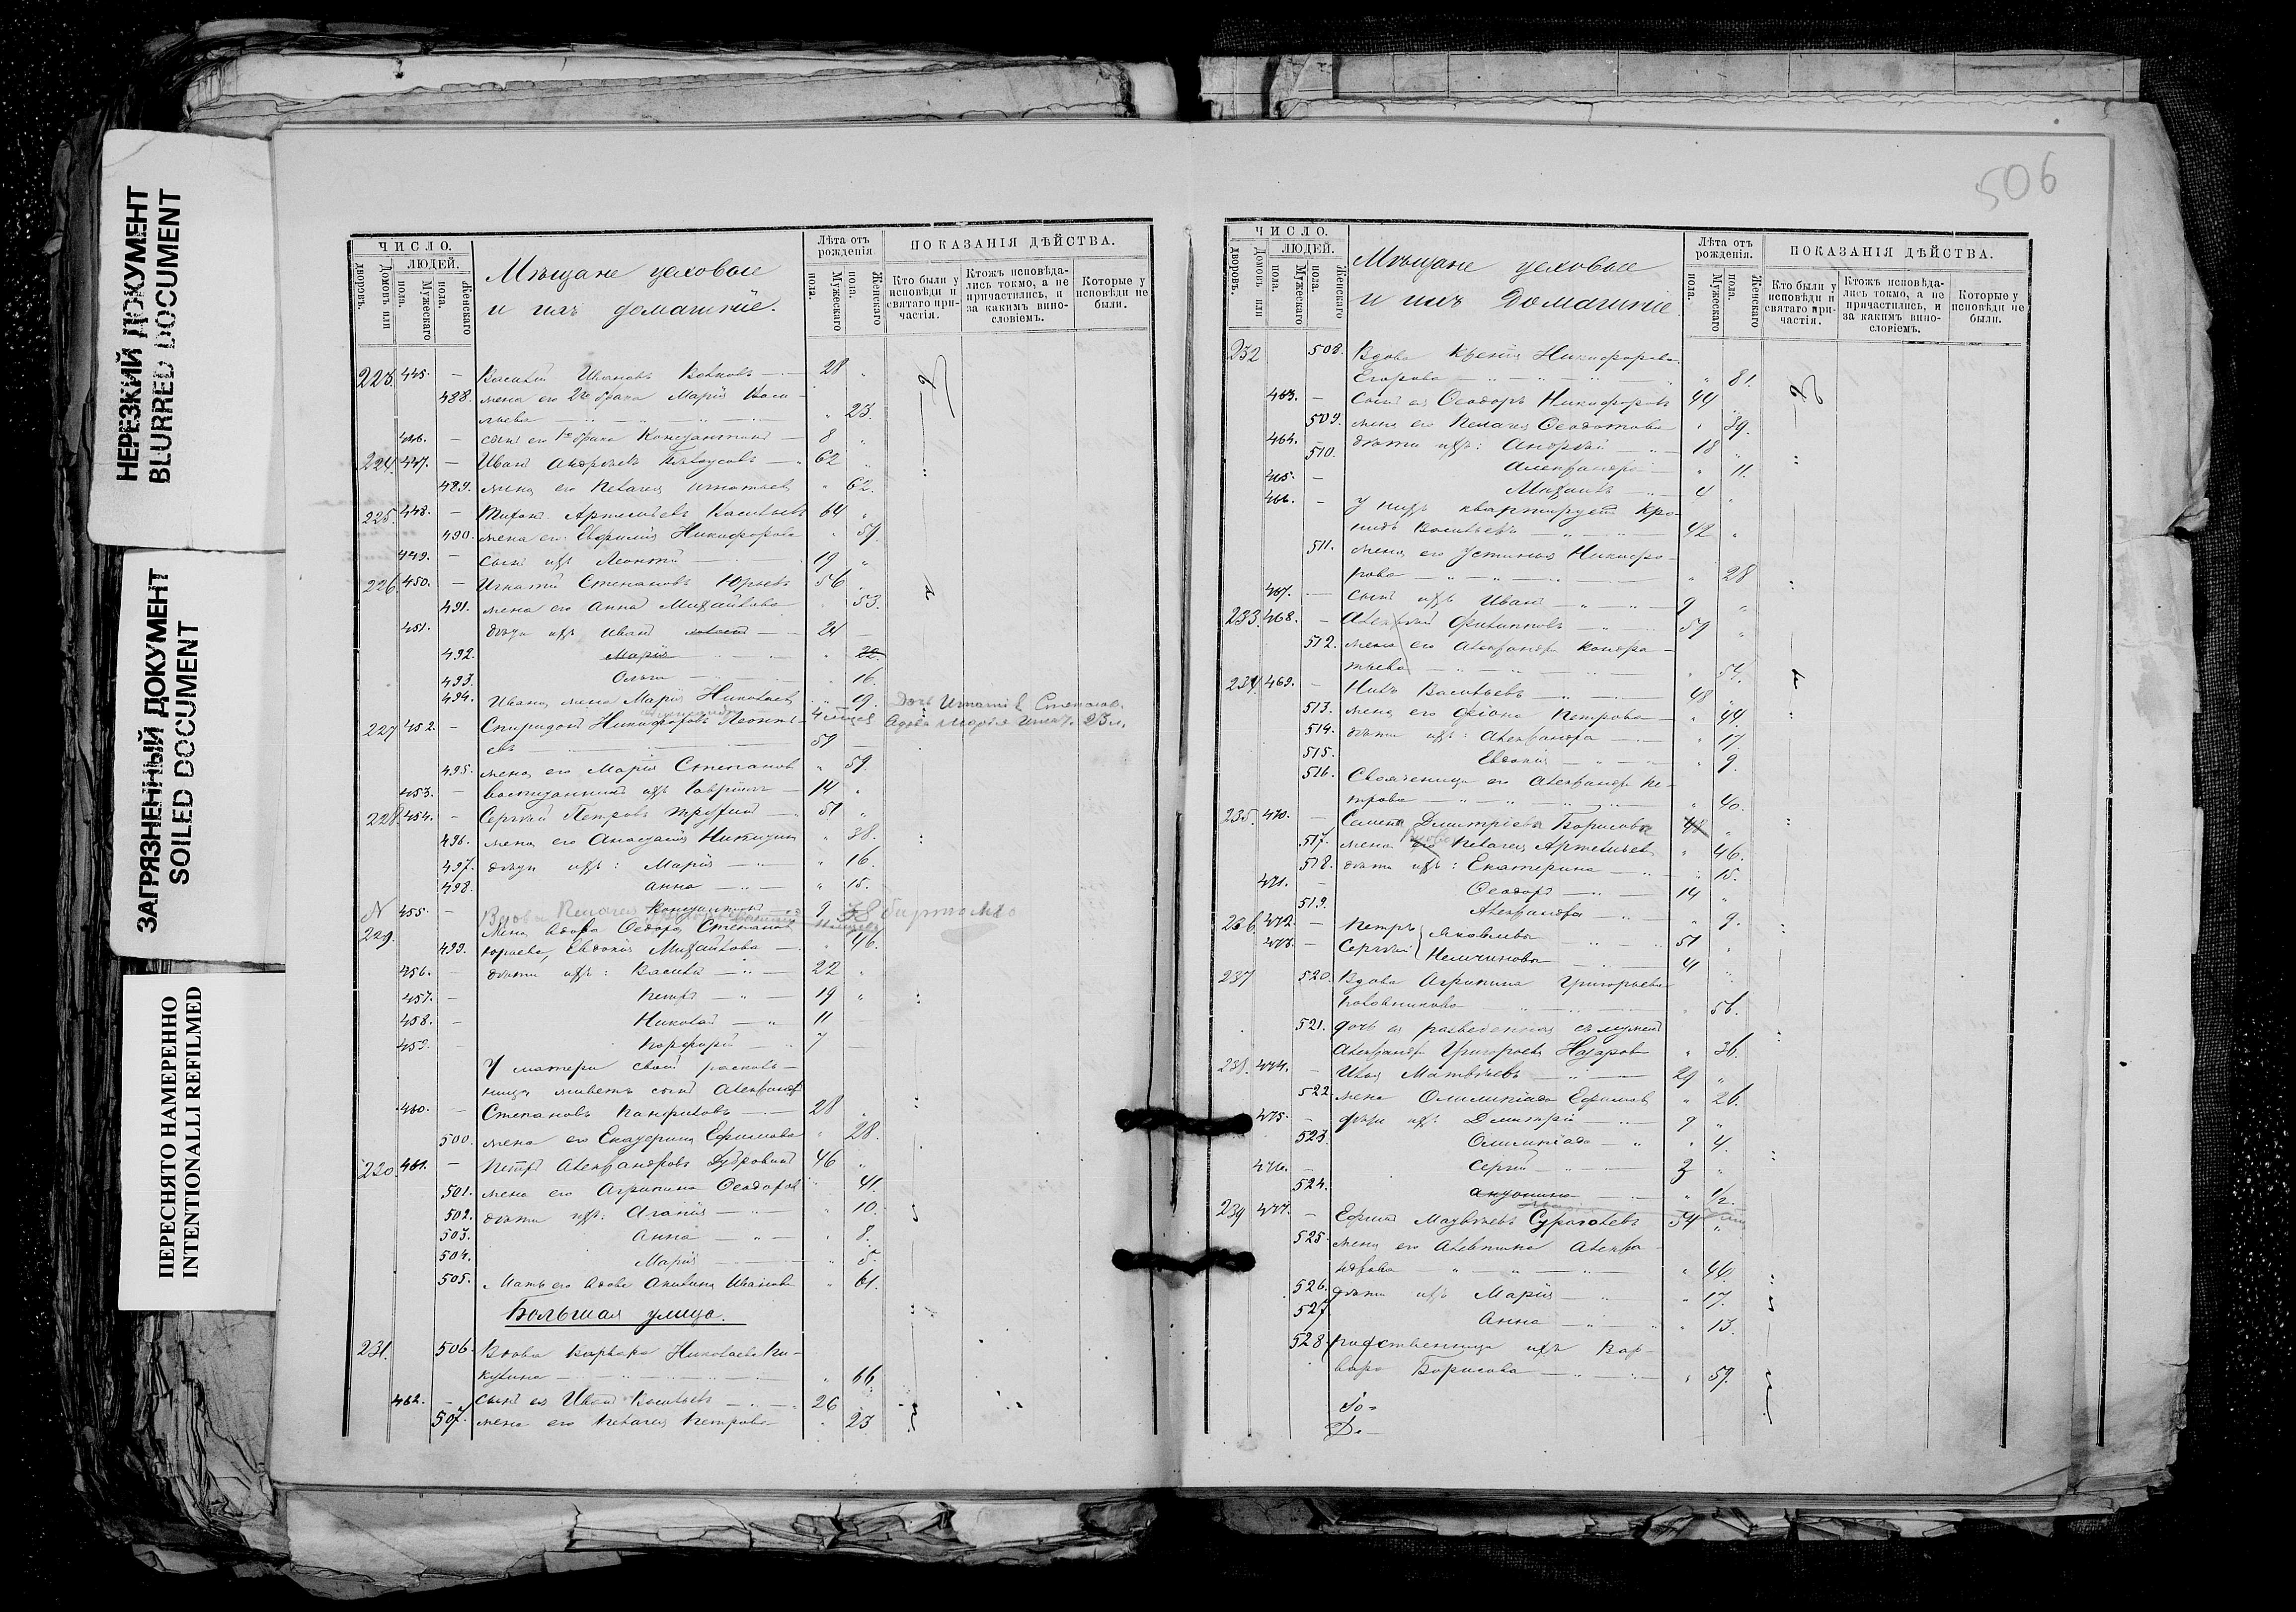 НЕРЕЗКИЙ ДОКУМЕНТ
BLURRED DOCUMENT
ЗАГРЯЗНЕННЫЙ ДОКУМЕНТ
SOILED DOCUMENT
ПЕРЕСНЯТО НАМЕРЕННО
INTENTIONALLI REFILMED
ЧИСЛО.
ЛЮДЕЙ.
Домовъ или дворовъ.
Мужескаго пола.
Женскаго пола.
Мѣщане цеховые
и ихъ домашніе.
Лѣта отъ рожденія
Мужескаго пола.
Женскаго пола.
ПОКАЗАНІЯ ДѢЙСТВА.
Кто были у исповѣди и святаго причастія.
Ктожъ исповѣдались токмо, а не причастились, и за какимъ винословіемъ.
Которые у исповѣди не были.
223. 445. – Василій Ивановъ 28 "
488. жена его 2го брака Марія Васи-
льева " 23.
446. – сынъ его 1го брака Константинъ 8 "
224. 447. – Иванъ Андреевъ 62 "
489. жена его Пелагея Игнатьев " 62.
225. 448. – Тихонъ Артемьевъ Васильевъ 64 "
490. жена его Евфимія Никифорова " 59.
449. – сынъ ихъ Леонтій 19 "
226. 450. – Игнатій Степановъ Юрьевъ 56
491. жена его Анна Михайлова 53.
451. дѣти ихъ Иванъ 24 –
492. Марія " 22.
493. Ольга 16.
494. Ивана жена Марія Николаев " 19. Дочь Игнатія Степанов.
227 452. – Спиридонъ Никифоровъ Леонть- вдова Марія Игнат. 23 л.
евъ 59
495. жена его Марія Степанов " 59.
453. – воспитанникъ ихъ Гавріилъ 14 "
228. 454. – Сергѣй Петровъ 51 "
496. жена его Анастасія Никитин " 38.
497. дѣти ихъ: Марія " 16.
498. Анна " 15.
455. – Константинъ 9
Вдова Пелагея 38
229. Жена вдова Федора Степанов
499. Юрьева, Евдокія Михайлова " 46.
456. – дѣти ихъ: Василій 22 "
457. – Петръ 19 "
458. – Николай 11
459. – Порфирій 7
У матери своей
живетъ сынъ Александръ
460. – Степановъ Панфиловъ 28 "
500. жена его Екатерина Ефимова " 28.
230. 461. – Петръ Александровъ 46 "
501. жена его Агрипина Феодоров " 41.
502. дѣти ихъ: Агапія " 10.
503. Анна " 8.
504. Марія " 5.
505. Мать его вдова Акилина Иванова " 61.
Большая улица.
231. 506. Вдова Варвара Николаева
66
462. – сынъ ея Иванъ Васильевъ 26
507. жена его Пелагея Петрова " 23
506
ЧИСЛО.
ЛЮДЕЙ.
Домовъ или дворовъ.
Мужескаго пола.
Женскаго пола.
Мѣщане цеховые
и ихъ Домашніе
Лѣта отъ рожденія.
Мужескаго пола.
Женскаго пола.
ПОКАЗАНІЯ ДѢЙСТВА.
Кто были у исповѣди и святаго причастія.
Ктожъ исповѣдались токмо, а не причастились, и за какимъ винословіемъ.
Которые у исповѣди не были.
232 508. Вдова Ксенія Никифорова
Егорова " 81.
463. – Сынъ ея Феодоръ Никифоровъ 44
509. жена его Пелагея Феодотова " 39.
464. дѣти ихъ: Андрей 18 "
510. Александра " 11.
465. – Михаилъ 4 "
466. – У нихъ квартируетъ Кро-
нидъ Васильевъ 42 "
511. жена его Устинья Никифо-
рова " 28
467. – сынъ ихъ Иванъ 9 "
233. 468. – Алексѣй Филипповъ 59 "
512. жена его Александра Кондра-
тьева 54.
234. 469. – Нилъ Васильевъ 48 "
513. жена его Фіона Петрова " 44.
514. дѣти ихъ: Александра " 17.
515. Евдокія " 9.
516. Свояченица его Александр Пе-
трова " 40.
235. 470. – Семена Дмитріева Борисова 48 "
517. жена вдова Пелагея Артемьев " 46.
518. дѣти ихъ: Екатерина " 15.
471. – Феодоръ 14 "
519. Александра " 9.
236 472. – Петръ Яковлевы 51 "
473. – Сергѣй Немчиновы 41 "
237 520. Вдова Агрипина Григорьева
" 56.
521. дочь ея разведенная съ мужемъ
Александр Григорьев Назаров " 36.
238. 474. – Илья Матвѣевъ 29 "
522. жена Олимпіада Ефимов " 26.
475. – дѣти ихъ Дмитрій 9 "
523. Олимпіада " 4.
476. – Сергій 3 "
524. Антонина " 1/2.
239 477. – Ефимъ Матвѣевъ 54 "
525. жена его Алевтина Алекса-
ндрова " 46.
526. дѣти ихъ Марія " 17.
527 Анна " 13.
528. родственница ихъ Вар-
вара Борисова " 59.